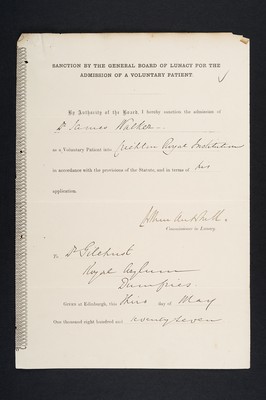 SANCTION BY THE GENERAL BOARD OF LUNACY FOR THE
ADMISSION OF A VOLUNTARY PATIENT.
By Authority of the Board, I hereby sanction the admission of
Dr James Walker
as a Voluntary Patient into Crichton Royal Institution
in accordance with the provisions of the Statute, and in terms of his
application.
Commissioner in Lunacy.
To Dr Gilchrist
Royal Asylum
Dumfries.
Given at Edinburgh, this third day of May
One thousand eight hundred and seventy seven